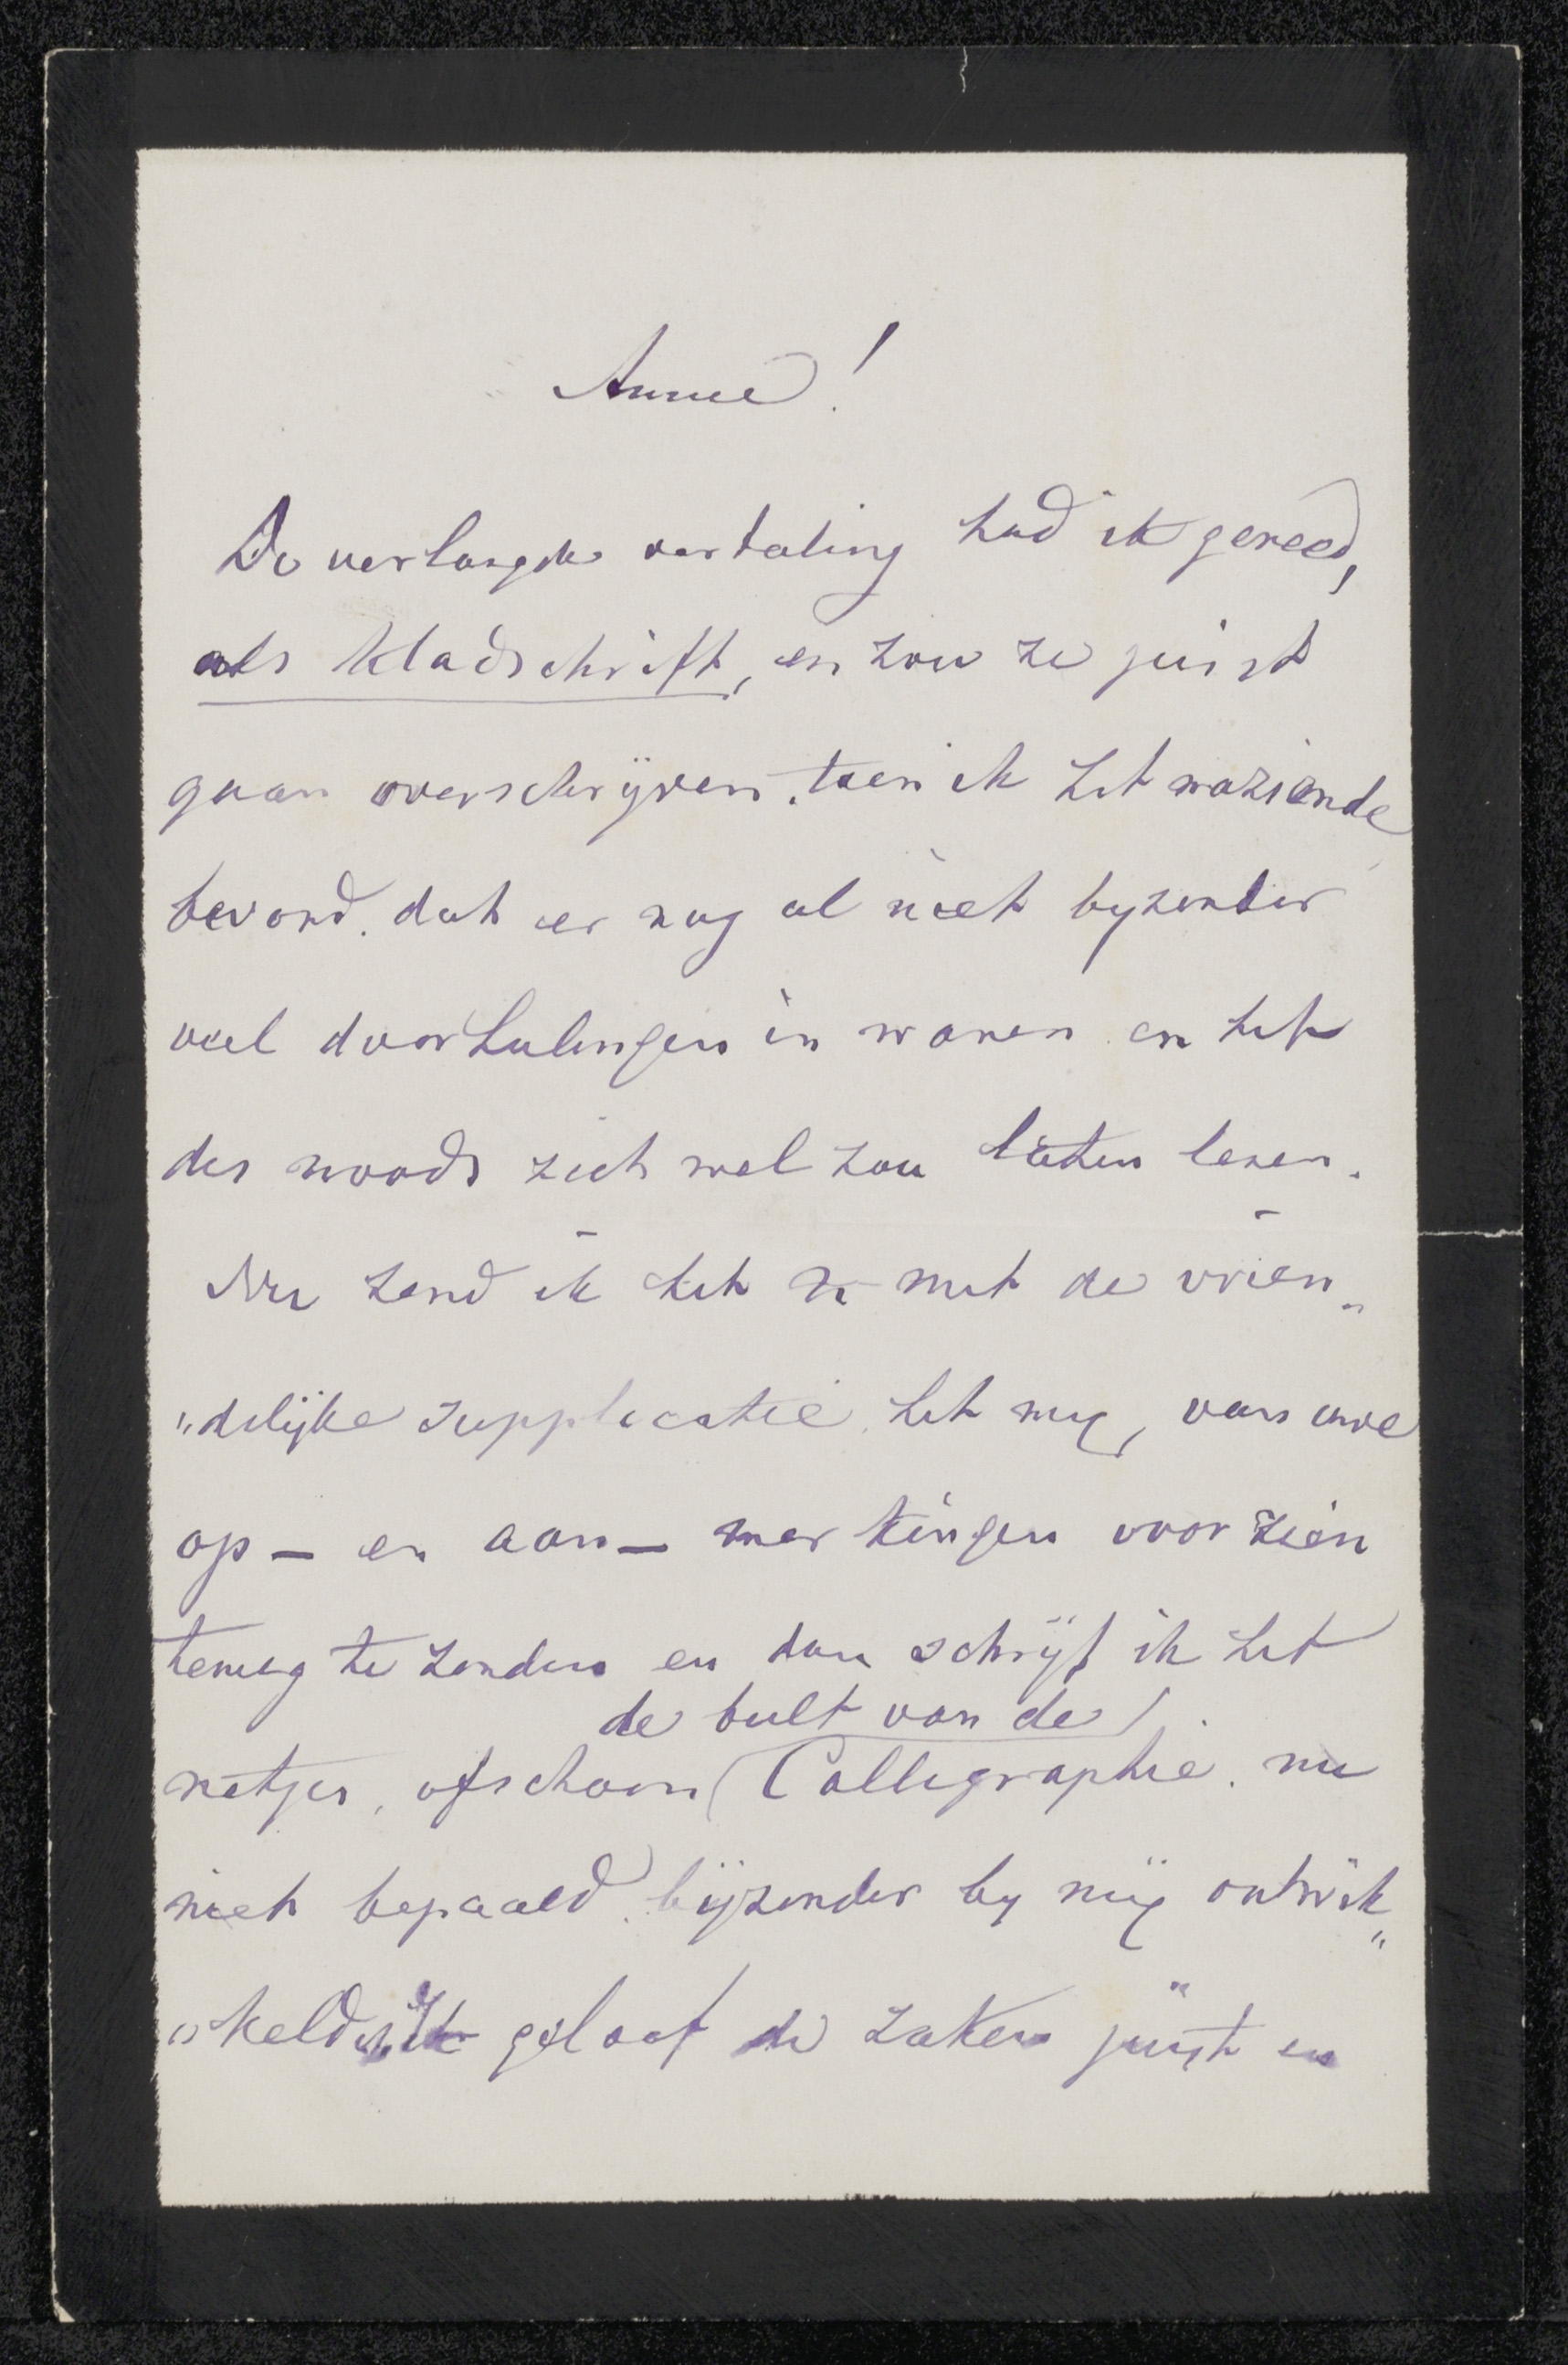 Amice!
De verlangde vertaling had ik gereed,
als kladschrift, en zou ze juist
gaan overschrijven, toen ik het naziende
bevond, dat er nog al niet byzonder
veel doorhalingen in waren en het
des noods zich wel zou laten lezen.
Nu zend ik het U met de vrien„
„delijke supplicatie het mij, van uwe
op- en aan- merkingen voorzien
terug te zenden en dan schrijf ik het
de bult van de
netjes, ofschoon Calligraphie. nu
niet bepaald byzonder by mij ontwik„
„keld is. Ik geloof de zaken juist en